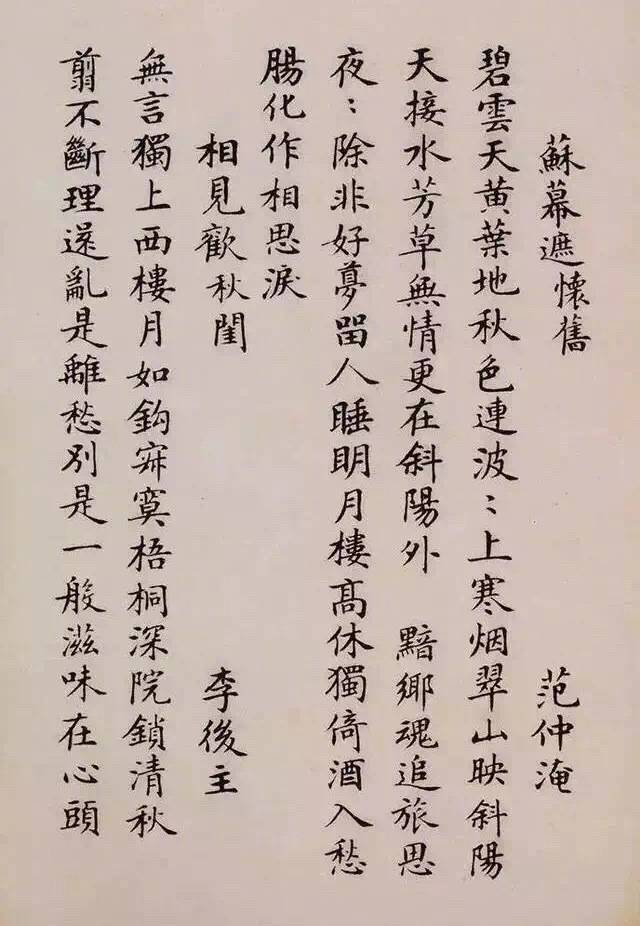 蘇幕遮懷舊 范仲淹
碧雲天黃葉地秋色連波：上寒烟翠山映斜陽
天接水芳草無情更在斜陽外 黯鄉魂追旅思
夜：除非好夢留人睡明月樓高休獨倚酒入愁
腸化作相思淚
相見歡秋閨 李後主
無言獨上西樓月如鉤寂寞梧桐深院鎖清秋
翦不斷理還亂是離愁別是一般滋味在心頭